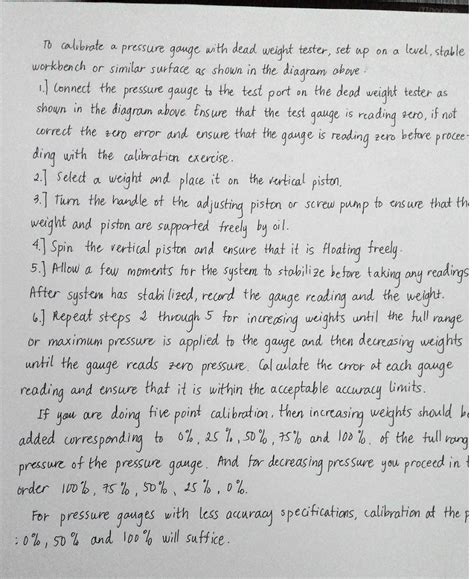 To calibrate a pressure gauge with dead weight tester, set up on a level, stable
workbench or similar surface as shown in the diagram above:
1.] Connect the pressure gauge to the test port on the dead weight tester as
shown in the diagram above Ensure that the test gauge is reading zero, if not
correct the zero error and ensure that the gauge is reading zero before procee-
ding with the calibration exercise.
2.] Select a weight and place it on the vertical piston,
3.] Turn the handle of the adjusting piston or screw pump to ensure that th
weight and piston are supported freely by oil.
4.] Spin the vertical piston and ensure that it is floating freely.
5.] Allow a few moments for the system to stabilize before taking any readings
After system has stabilized, record the gauge reading and the weight.
6.] Repeat steps 2 through 5 for increasing weights until the full range
or maximum pressure is applied to the gauge and then decreasing weights
until the gauge reads zero pressure. Calculate the error at each gauge
reading and ensure that it is within the acceptable accuracy limits.
If you are doing five point calibration, then increasing weights should b
added corresponding to 0%, 25%, 50%, 75% and 100%. of the full rang
pressure of the pressure gauge. And for decreasing pressure you proceed in
order 100%, 75%, 50%, 25%, 0%.
For pressure gauges with less accuracy specifications, calibration at the p
: 0%, 50% and 100% will suffice.